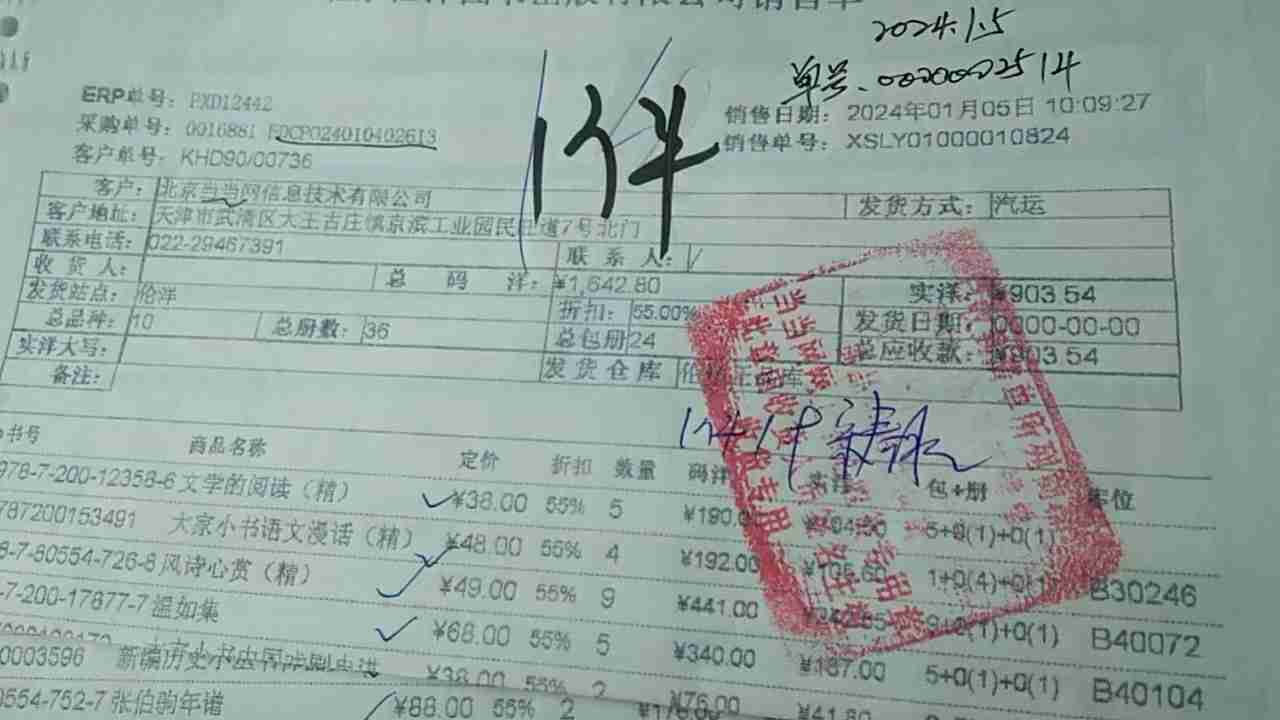 2024.1.5
单号.0000002514
1个件
ERP单号: PXD12442
销售日期: 2024年01月05日 10:09:27
采购单号: 0016881 FDCP024010402613
销售单号: XSLY01000010824
客户单号: KHD90/00736
客户: 北京当当网信息技术有限公司 发货方式: 汽运
客户地址: 天津市武清区大王古庄镇京滨工业园民旺道7号北门
联系电话: 022-29467391 联系人:
收货人: 总码洋: ¥1,642.80 实洋: ¥903.54
发货站点: 伦洋 折扣: 55.00% 发货日期: 0000-00-00
总品种: 10 总册数: 36 总包册 24 总应收款: ¥903.54
实洋大写: 发货仓库
备注:
书号 商品名称 定价 折扣 数量 码洋 实洋 包+册 库位
978-7-200-12358-6 文学的阅读(精) ¥38.00 55% 5 ¥190.0 5+0(1)+0(1)
787200153491 大京小书语文漫话(精) ¥48.00 55% 4 ¥192.00 ¥105.60 1+0(4)+0(1) B30246
8-7-80554-726-8 风诗心赏(精) ¥49.00 55% 9 ¥441.00 +0(1)+0(1) B40072
-7-200-17877-7 温如集 ¥68.00 55% 5 ¥340.00 ¥187.00 5+0(1)+0(1) B40104
0003596 新编历史小丛书 ¥38.00 55% 2 ¥76.00 ¥41.80
0554-752-7 张伯驹年谱 ¥88.00 55% 2